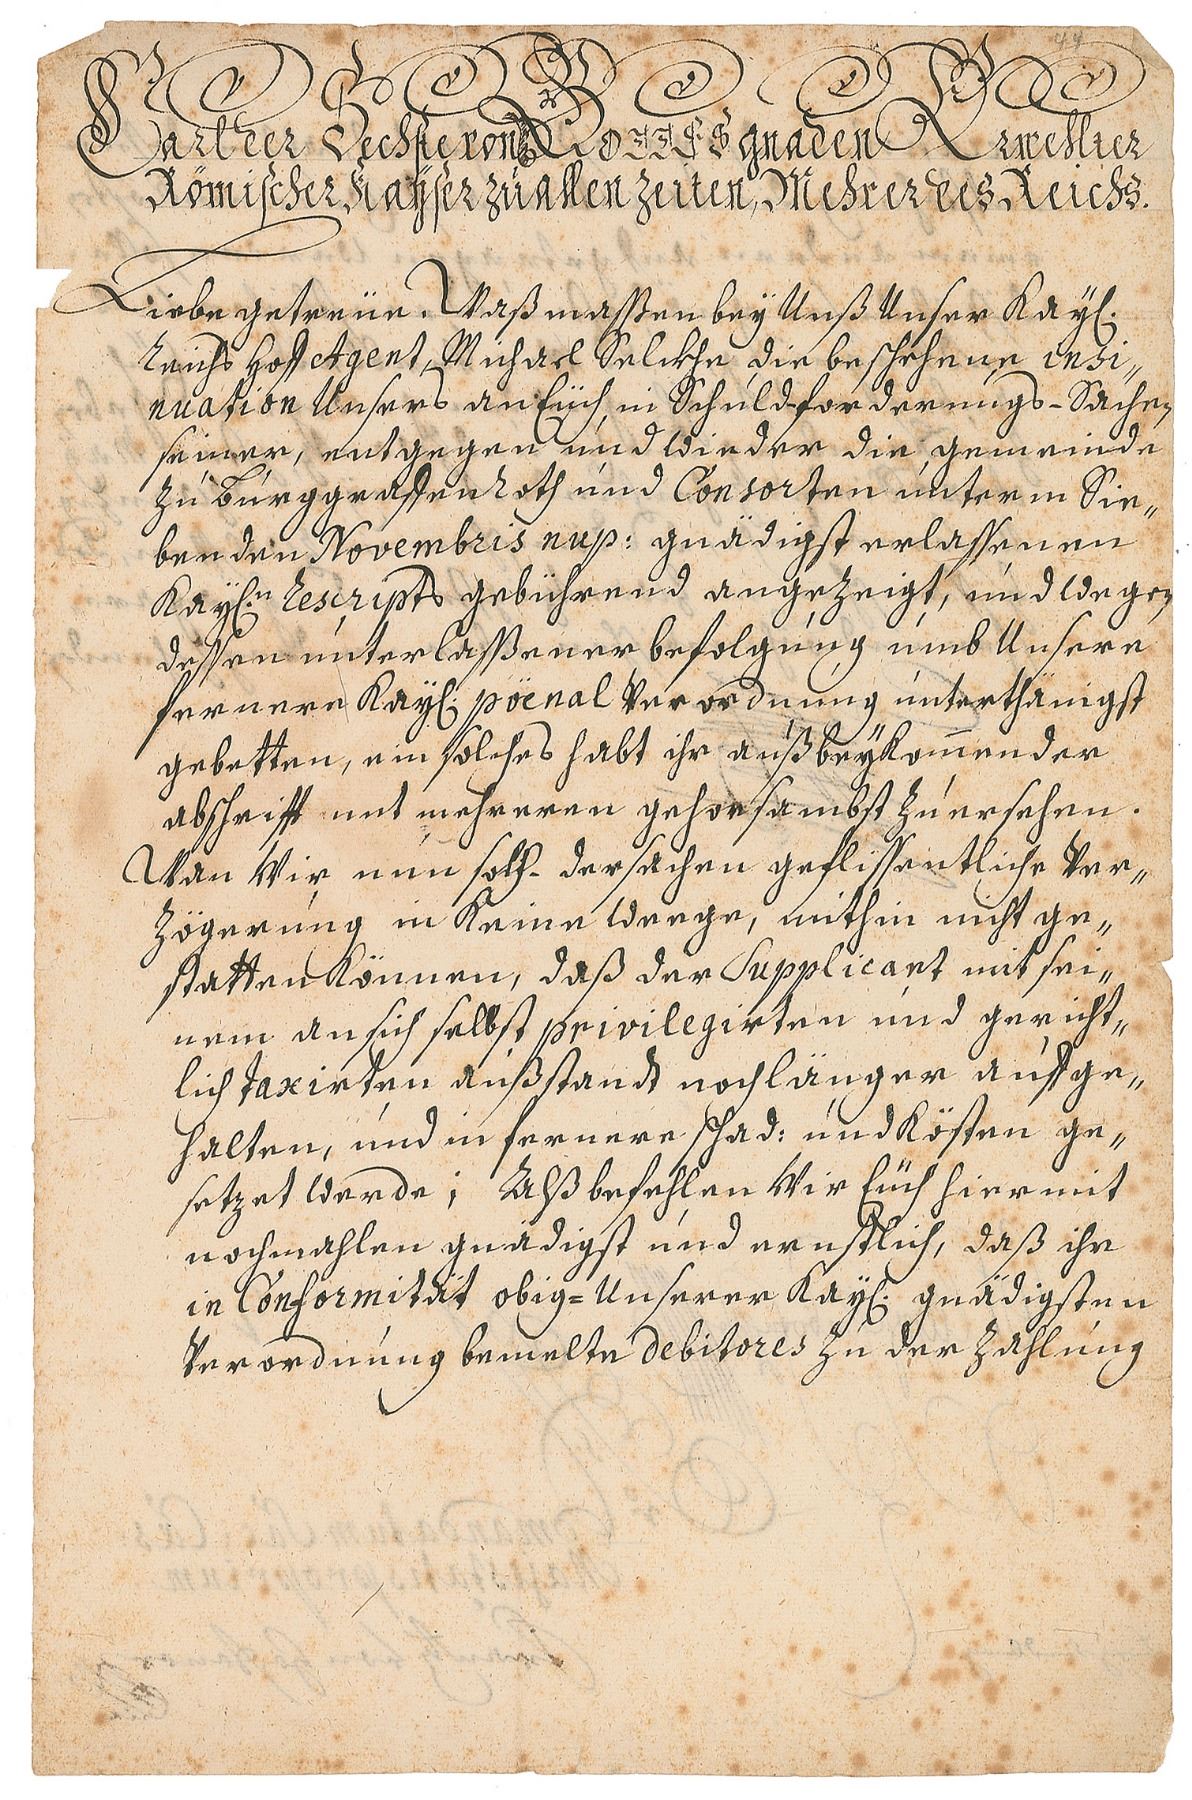 Carl der Sechste von GOTTES gnaden Erwehlter
Römischer Kayser zu allen Zeiten, Mehrer des Reichs.
Liebe getreüe. Waß massßen bey Unß Unser Kayl.
Reichs Hoff Agent, Michael Selckhe die beschehene insi„
nuation Unsers an Eüch in Schuldforderungs-Sachen
seiner, entgegen und wieder die gemeinde
zu Burggraffenroth und Consorten unterm Sie„
benden Novembris nup: gnädigst erlassenen
Kayl.n Rescripts gebührend angezeigt, und wegen
dessen unterlaßßener befolgung umb Unsere
fernere Kayl. pöenal Verordnung unterthänigst
gebetten, ein solches habt ihr auß beykom̄ender
abschrifft mit mehreren gehorsambst zu ersehen.
Wan Wir nun solch- der sachen geflissentliche Ver„
zögerung in Keine weege, mithin nicht ge„
statten Können, daß der Supplicant mit sei„
nem an sich selbst privilegirten und gericht„
lich taxirten außstandt noch länger auffge„
halten, und in fernere schad: und Kösten ge„
setzet werde; Alß befehlen Wir Eüch hiermit
nochmahlen gnädigst und ernstlich, daß ihr
in Conformität obig= Unserer Kayl. gnädigsten
Verordnung bemelte debitores zu der Zahlung